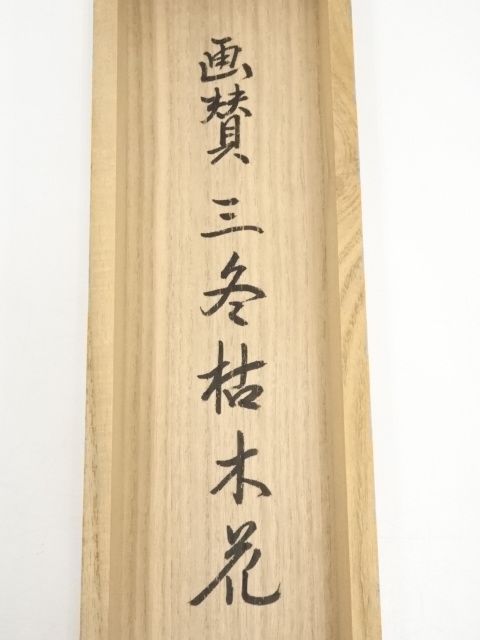 画賛 三冬枯木花